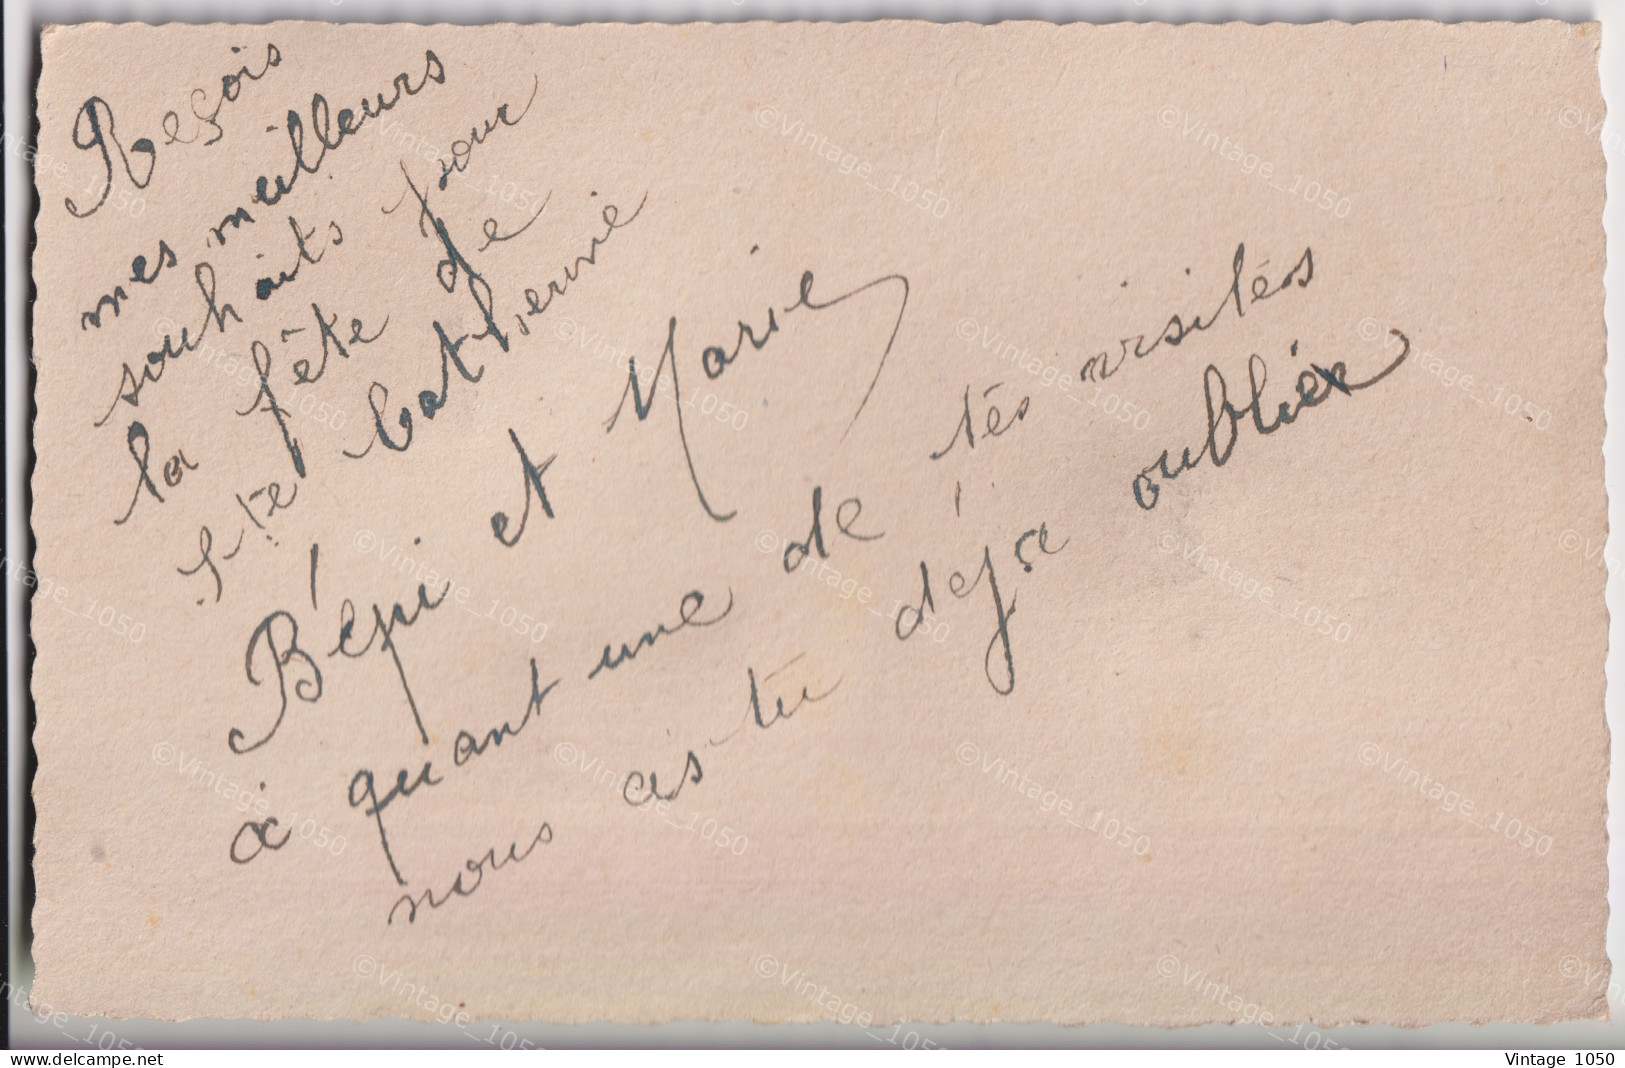 Reçois
mes meilleurs
souhaits pour
la fête de
Ste Catherine
Bépi et Marie
à quant une de tés visités
nous as-tu déja oublier
©Vintage_1050
www.delcampe.net
Vintage 1050